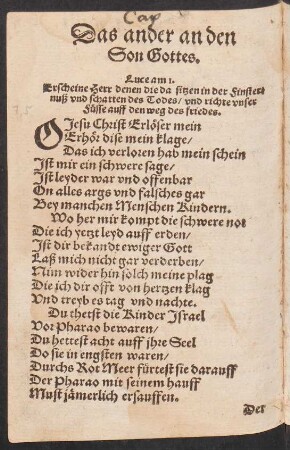 Cap
Das ander an den
Son Gottes.
Luce am 1.
Erscheine Herr denen die da sitzen in der Finster
nuß vnd schatten des Todes/ vnd richte vnser
Füsse auff den weg des friedes.
O Jesu Christ Erlöser mein
Erhör dise mein klage/
Das ich verloren hab mein schein
Ist mir ein schwere sage/
Ist leyder war vnd offenbar
On alles args vnd falsches gar
Bey manchen Menschen Kindern.
Wo her mir kompt die schwere not
Die ich yetzt leyd auff erden/
Ist dir bekandt ewiger Gott
Laß mich nicht gar verderben/
Nim wider hin solch meine plag
Die ich dir offt von hertzen klag
Vnd treyb es tag vnd nachte.
Du thetst die Kinder Israel
Vor Pharao bewaren/
Du hettest acht auff ihre Seel
Do sie in engsten waren/
Durchs Rot Meer fürtest sie darauff
Der Pharao mit seinem hauff
Must jämerlich ersauffen.
Der